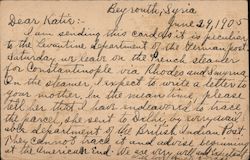 Beyrouth, Syria
Dear Katie:- June 29, 1903
I am sending this card as it is peculiar
to the Levantine department of the German post.
Saturday we leave on the French steamer
for Constantinople via Rhodes and Smyrna
On the steamer I expect to write a letter to
your mother, in the meantime please
tell her that I have endeavored to trace
the parcel, she sent to Delhi, by
department of the British Indian Post.
They cannot trace it and advise beginning
at the American End. We are very well and enjoying